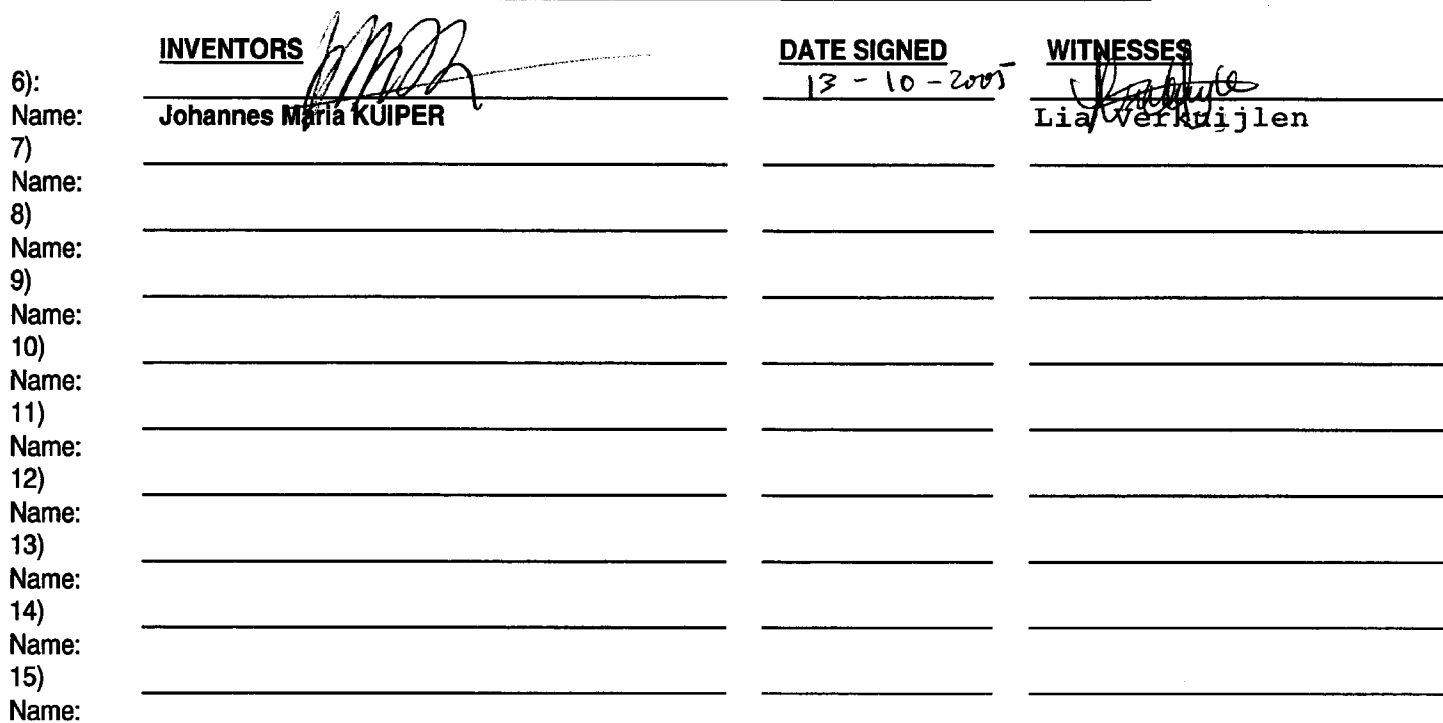 INVENTORS DATE SIGNED WITNESSES
6): 13 - 10 - 2005
Name: Johannes Maria KUIPER Lia Verkuijlen
7)
Name:
8)
Name:
9)
Name:
10)
Name:
11)
Name:
12)
Name:
13)
Name:
14)
Name:
15)
Name: